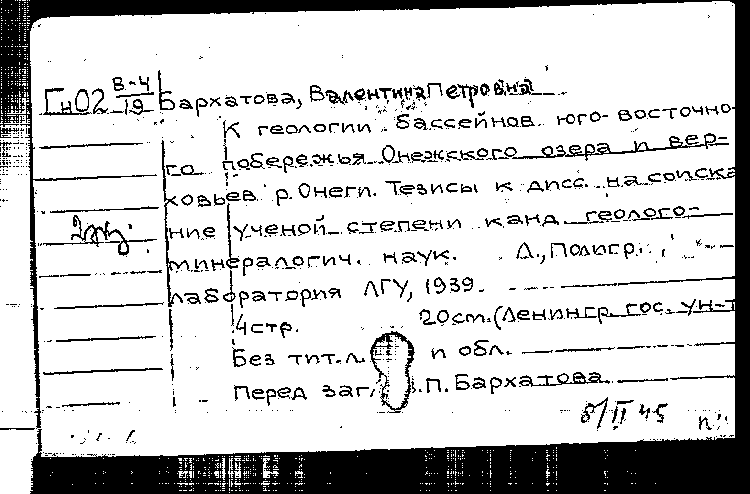 Гн02 В-4/19 Бархатова, Валентина Петровна
К геологии бассейнов юго-восточно-
го побережья Онежского озера и вер-
ховьев р.Онеги. Тезисы к дисс. на соиска
2 экз. ние ученой степени канд. геолого-
минералогич. наук. Л., Полигр.
лаборатория ЛГУ, 1939.
4стр. 20см. (Ленингр. гос. ун-т
Без тит.л. и обл.
Перед заг. В.П. Бархатова
8/II 45